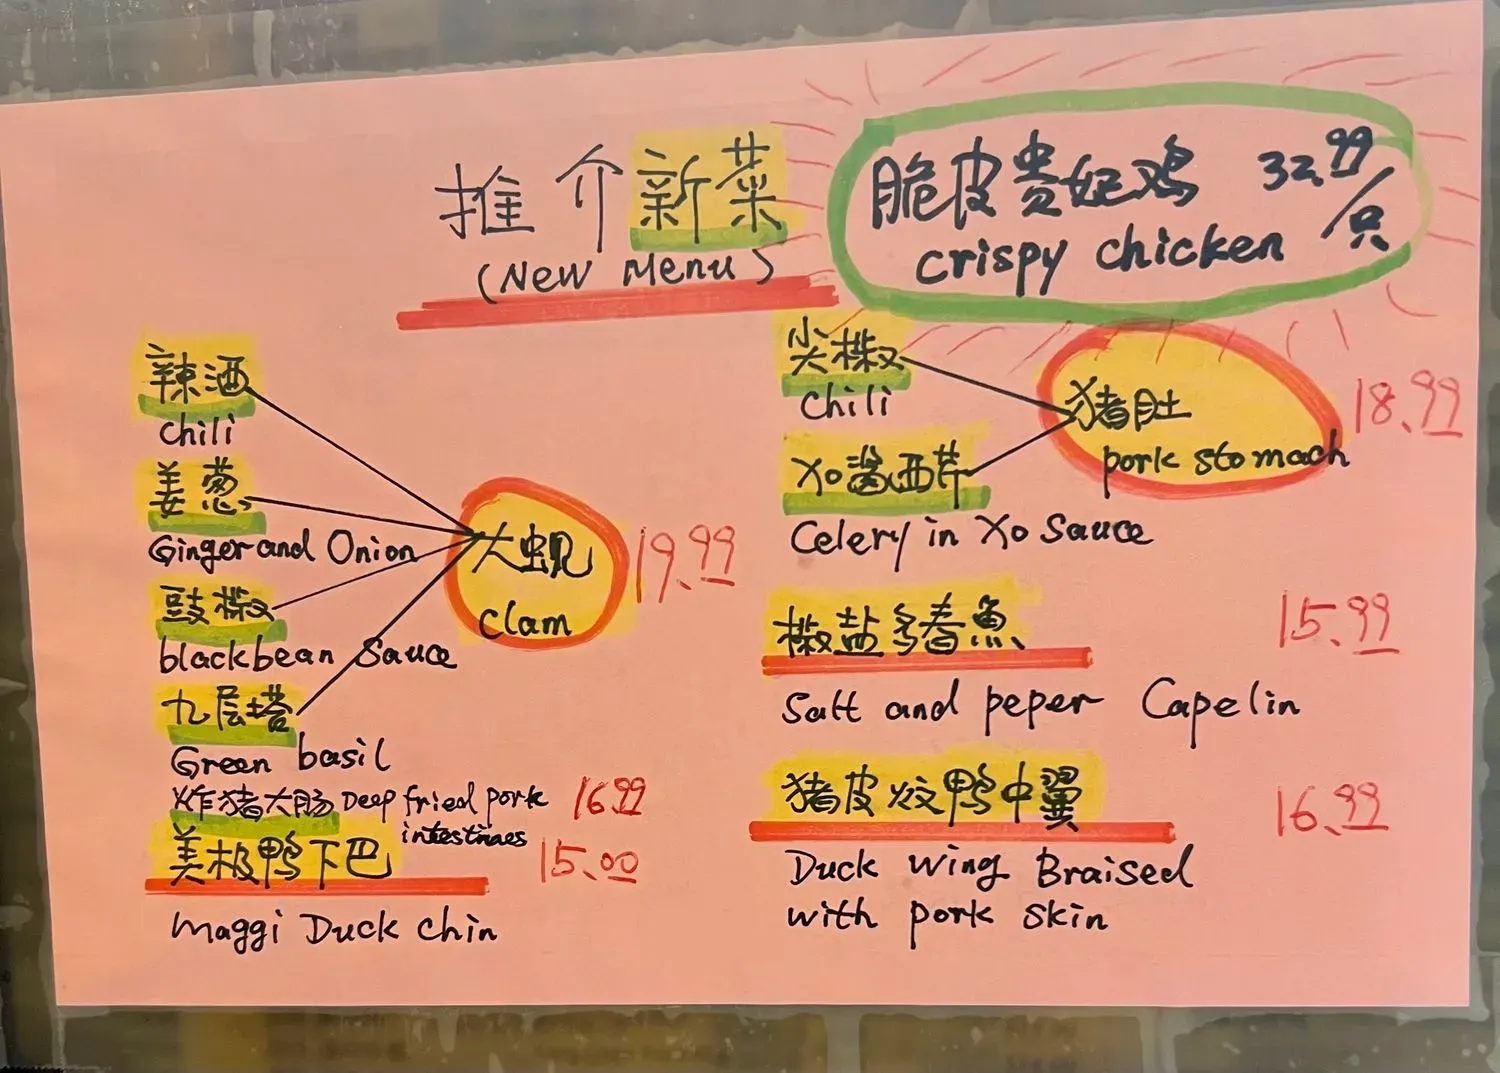 推介新菜
(New Menu)
脆皮贵妃鸡 32.99/只
crispy chicken
辣酒
chili
姜葱
Ginger and Onion
豉椒
blackbean sauce
九层塔
Green basil
大蚬
Clam
19.99
炸猪大肠 Deep fried pork 16.99
intestines
美极鸭下巴 15.00
maggi Duck chin
尖椒
chili
XO酱西芹
Celery in XO Sauce
猪肚
pork stomach
18.99
椒盐多春魚 15.99
Salt and peper Capelin
猪皮炆鸭中翼 16.99
Duck wing Braised
with pork skin